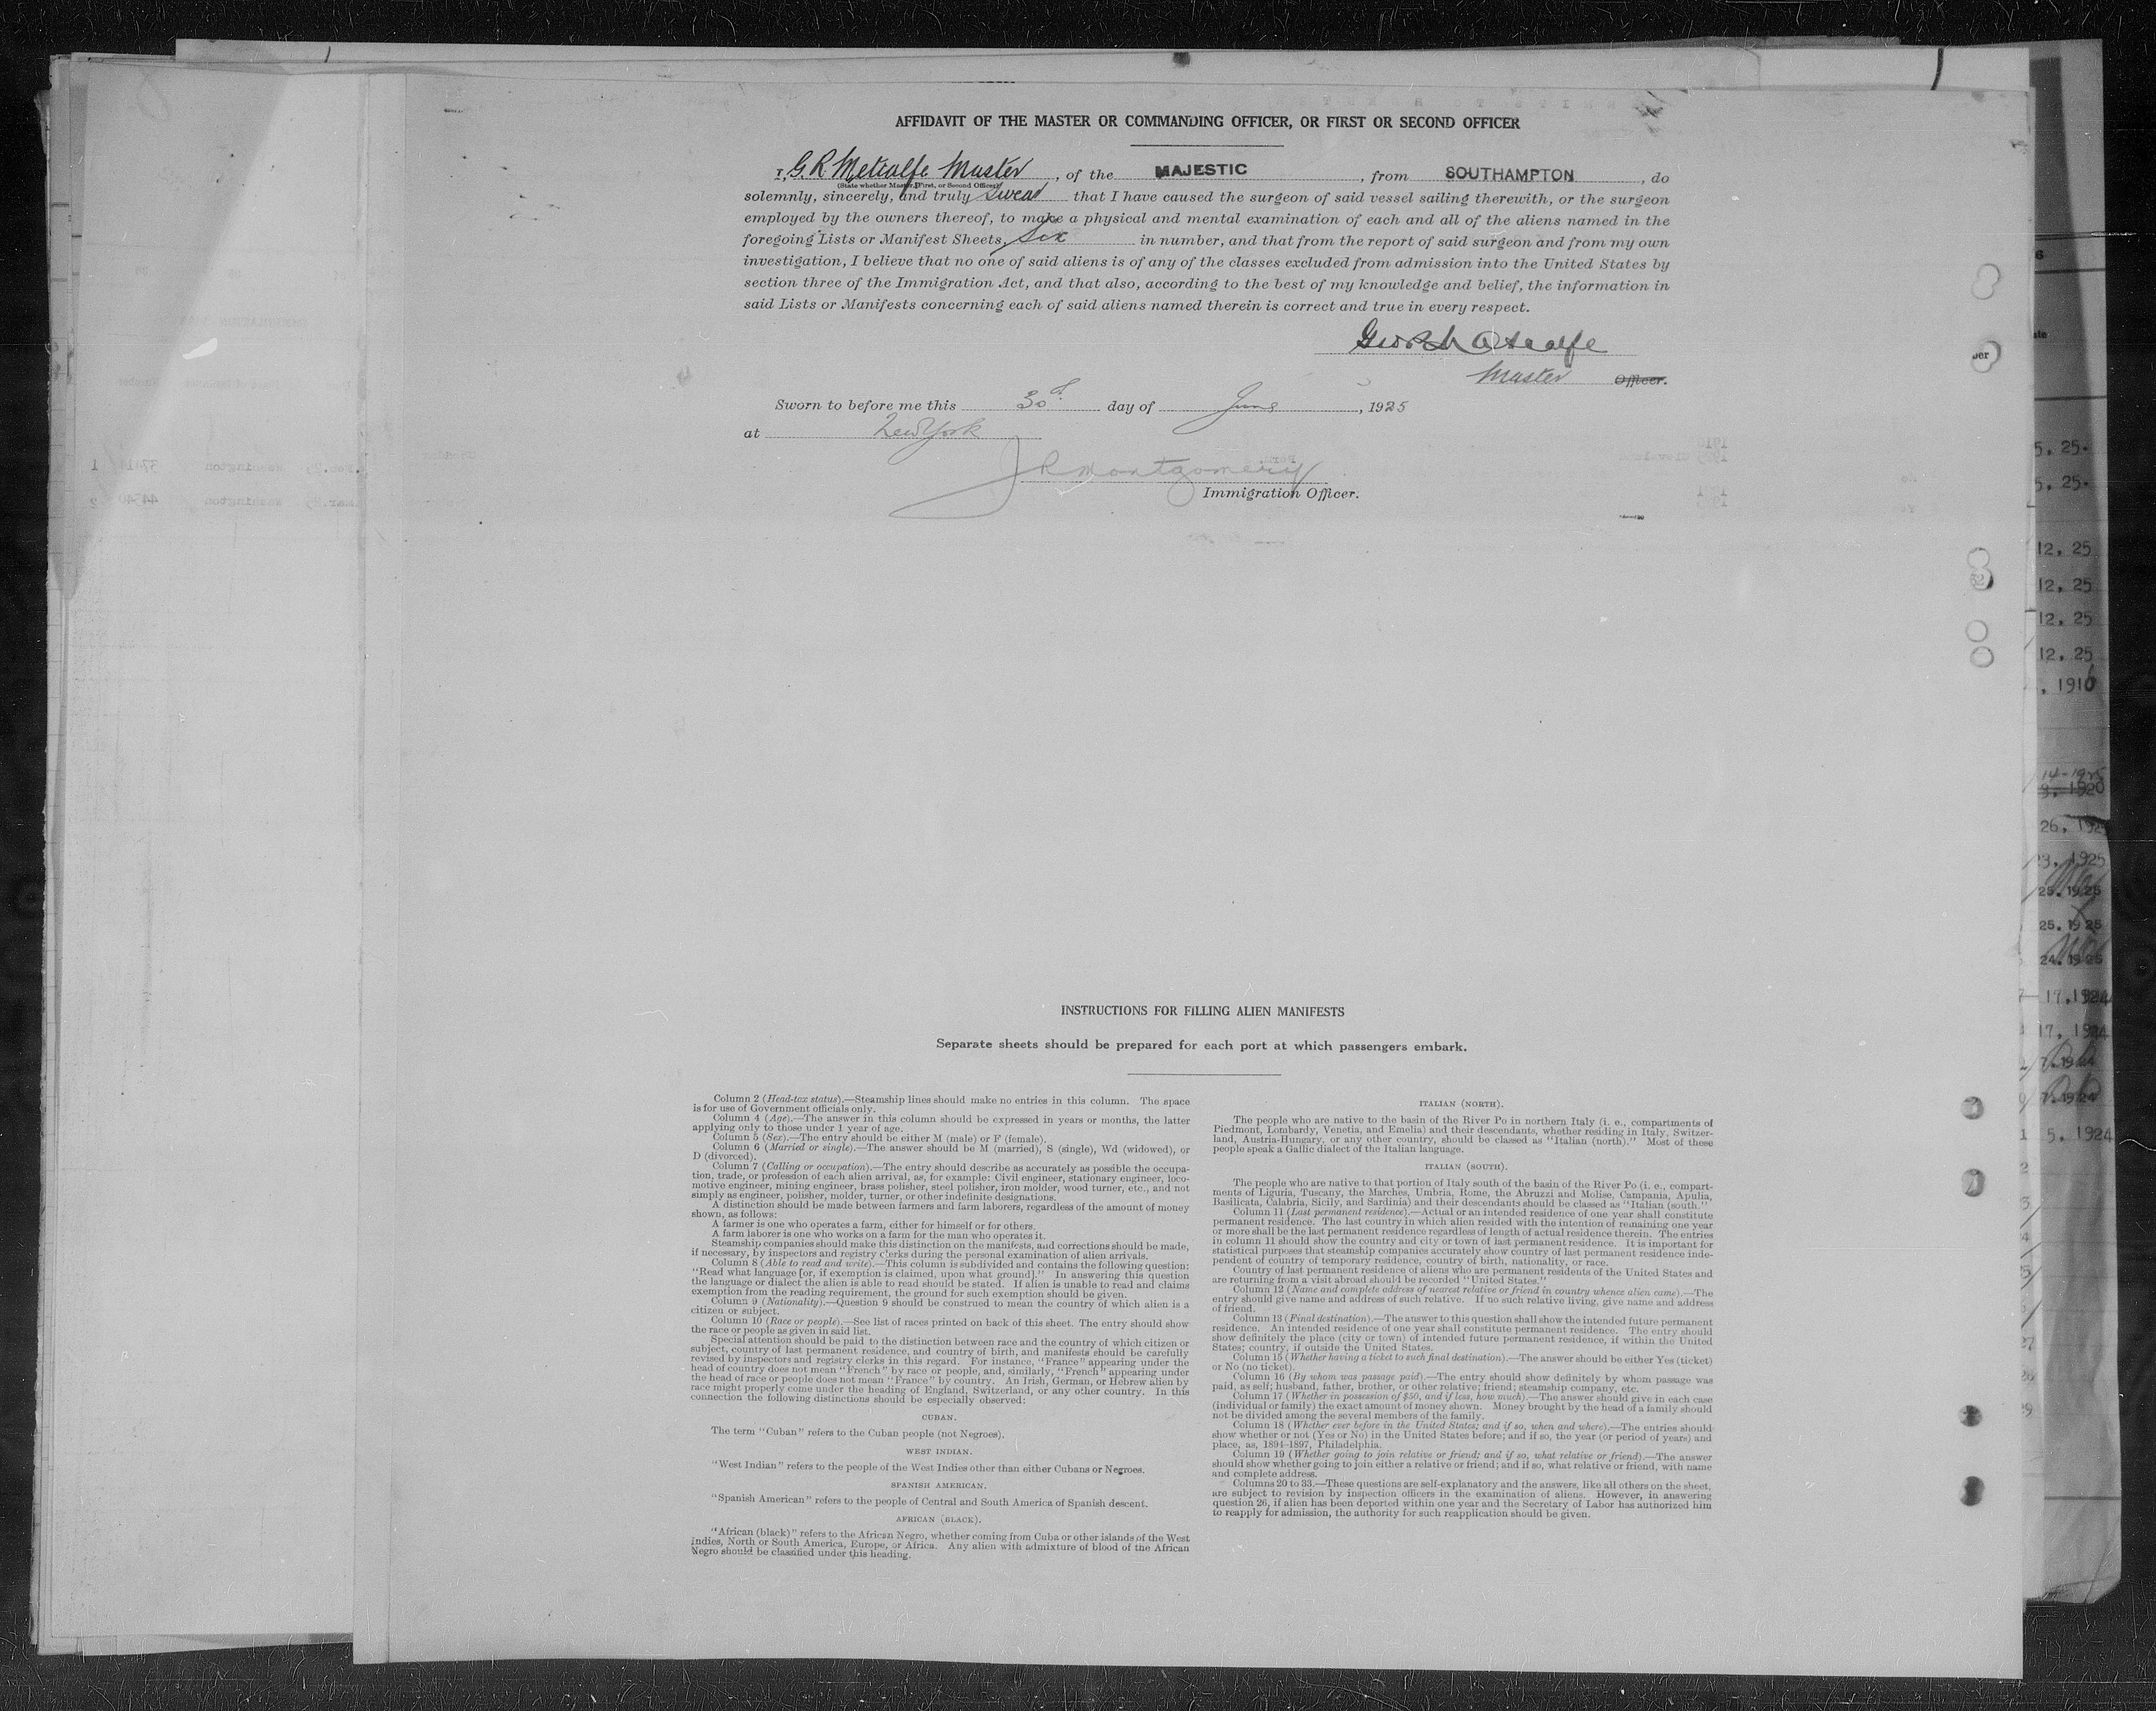 AFFIDAVIT OF THE MASTER OR COMMANDING OFFICER, OR FIRST OR SECOND OFFICER
I, G. R Metcalfe Master , of the MAJESTIC , from SOUTHAMPTON , do
(State whether Master, First, or Second Officer)
solemnly, sincerely, and truly swear that I have caused the surgeon of said vessel sailing therewith, or the surgeon
employed by the owners thereof, to make a physical and mental examination of each and all of the aliens named in the
foregoing Lists or Manifest Sheets, Six in number, and that from the report of said surgeon and from my own
investigation, I believe that no one of said aliens is of any of the classes excluded from admission into the United States by
section three of the Immigration Act, and that also, according to the best of my knowledge and belief, the information in
said Lists or Manifests concerning each of said aliens named therein is correct and true in every respect.
Geo R Metcalfe
Master Officer.
Sworn to before me this 30d day of June , 1925
at New York
J R Montgomery
Immigration Officer.
INSTRUCTIONS FOR FILLING ALIEN MANIFESTS
Separate sheets should be prepared for each port at which passengers embark.
Column 2 (Head-tax status).—Steamship lines should make no entries in this column. The space
is for use of Government officials only.
Column 4 (Age).—The answer in this column should be expressed in years or months, the latter
applying only to those under 1 year of age.
Column 5 (Sex).—The entry should be either M (male) or F (female).
Column 6 (Married or single).—The answer should be M (married), S (single), Wd (widowed), or
D (divorced).
Column 7 (Calling or occupation).—The entry should describe as accurately as possible the occupa-
tion, trade, or profession of each alien arrival, as, for example: Civil engineer, stationary engineer, loco-
motive engineer, mining engineer, brass polisher, steel polisher, iron molder, wood turner, etc., and not
simply as engineer, polisher, molder, turner, or other indefinite designations.
A distinction should be made between farmers and farm laborers, regardless of the amount of money
shown, as follows:
A farmer is one who operates a farm, either for himself or for others.
A farm laborer is one who works on a farm for the man who operates it.
Steamship companies should make this distinction on the manifests, and corrections should be made,
if necessary, by inspectors and registry clerks during the personal examination of alien arrivals.
Column 8 (Able to read and write).—This column is subdivided and contains the following question:
"Read what language [or, if exemption is claimed, upon what ground]." In answering this question
the language or dialect the alien is able to read should be stated. If alien is unable to read and claims
exemption from the reading requirement, the ground for such exemption should be given.
Column 9 (Nationality).—Question 9 should be construed to mean the country of which alien is a
citizen or subject.
Column 10 (Race or people).—See list of races printed on back of this sheet. The entry should show
the race or people as given in said list.
Special attention should be paid to the distinction between race and the country of which citizen or
subject, country of last permanent residence, and country of birth, and manifests should be carefully
revised by inspectors and registry clerks in this regard. For instance, "France" appearing under the
head of country does not mean "French" by race or people, and, similarly, "French" appearing under
the head of race or people does not mean "France" by country. An Irish, German, or Hebrew alien by
race might properly come under the heading of England, Switzerland, or any other country. In this
connection the following distinctions should be especially observed:
CUBAN.
The term "Cuban" refers to the Cuban people (not Negroes).
WEST INDIAN.
"West Indian" refers to the people of the West Indies other than either Cubans or Negroes.
SPANISH AMERICAN.
"Spanish American" refers to the people of Central and South America of Spanish descent.
AFRICAN (BLACK).
"African (black)" refers to the African Negro, whether coming from Cuba or other islands of the West
Indies, North or South America, Europe, or Africa. Any alien with admixture of blood of the African
Negro should be classified under this heading.
ITALIAN (NORTH).
The people who are native to the basin of the River Po in northern Italy (i. e., compartments of
Piedmont, Lombardy, Venetia, and Emelia) and their descendants, whether residing in Italy, Switzer-
land, Austria-Hungary, or any other country, should be classed as "Italian (north)." Most of these
people speak a Gallic dialect of the Italian language.
ITALIAN (SOUTH).
The people who are native to that portion of Italy south of the basin of the River Po (i. e., compart-
ments of Liguria, Tuscany, the Marches, Umbria, Rome, the Abruzzi and Molise, Campania, Apulia,
Basilicata, Calabria, Sicily, and Sardinia) and their descendants should be classed as "Italian (south."
Column 11 (Last permanent residence).—Actual or an intended residence of one year shall constitute
permanent residence. The last country in which alien resided with the intention of remaining one year
or more shall be the last permanent residence regardless of length of actual residence therein. The entries
in column 11 should show the country and city or town of last permanent residence. It is important for
statistical purposes that steamship companies accurately show country of last permanent residence inde-
pendent of country of temporary residence, country of birth, nationality, or race.
Country of last permanent residence of aliens who are permanent residents of the United States and
are returning from a visit abroad should be recorded "United States."
Column 12 (Name and complete address of nearest relative or friend in country whence alien came).—The
entry should give name and address of such relative. If no such relative living, give name and address
of friend.
Column 13 (Final destination).—The answer to this question shall show the intended future permanent
residence. An intended residence of one year shall constitute permanent residence. The entry should
show definitely the place (city or town) of intended future permanent residence, if within the United
States; country, if outside the United States.
Column 15 (Whether having a ticket to such final destination).—The answer should be either Yes (ticket)
or No (no ticket).
Column 16 (By whom was passage paid).—The entry should show definitely by whom passage was
paid, as self; husband, father, brother, or other relative; friend; steamship company, etc.
Column 17 (Whether in possession of $50, and if less, how much).—The answer should give in each case
(individual or family) the exact amount of money shown. Money brought by the head of a family should
not be divided among the several members of the family.
Column 18 (Whether ever before in the United States; and if so, when and where).—The entries should
show whether or not (Yes or No) in the United States before; and if so, the year (or period of years) and
place, as, 1894-1897, Philadelphia.
Column 19 (Whether going to join relative or friend; and if so, what relative or friend).—The answer
should show whether going to join either a relative or friend; and if so, what relative or friend, with name
and complete address.
Columns 20 to 33.—These questions are self-explanatory and the answers, like all others on the sheet,
are subject to revision by inspection officers in the examination of aliens. However, in answering
question 26, if alien has been deported within one year and the Secretary of Labor has authorized him
to reapply for admission, the authority for such reapplication should be given.
5, 25.
5, 25.
12, 25
12, 25
12, 25
12, 25
, 1916
14-1925
9. 1920
26, 1925
23, 1925
25. 1925
25. 1925
24. 1925
17. 1924
17, 1924
7. 1924
7. 1924
5. 1924